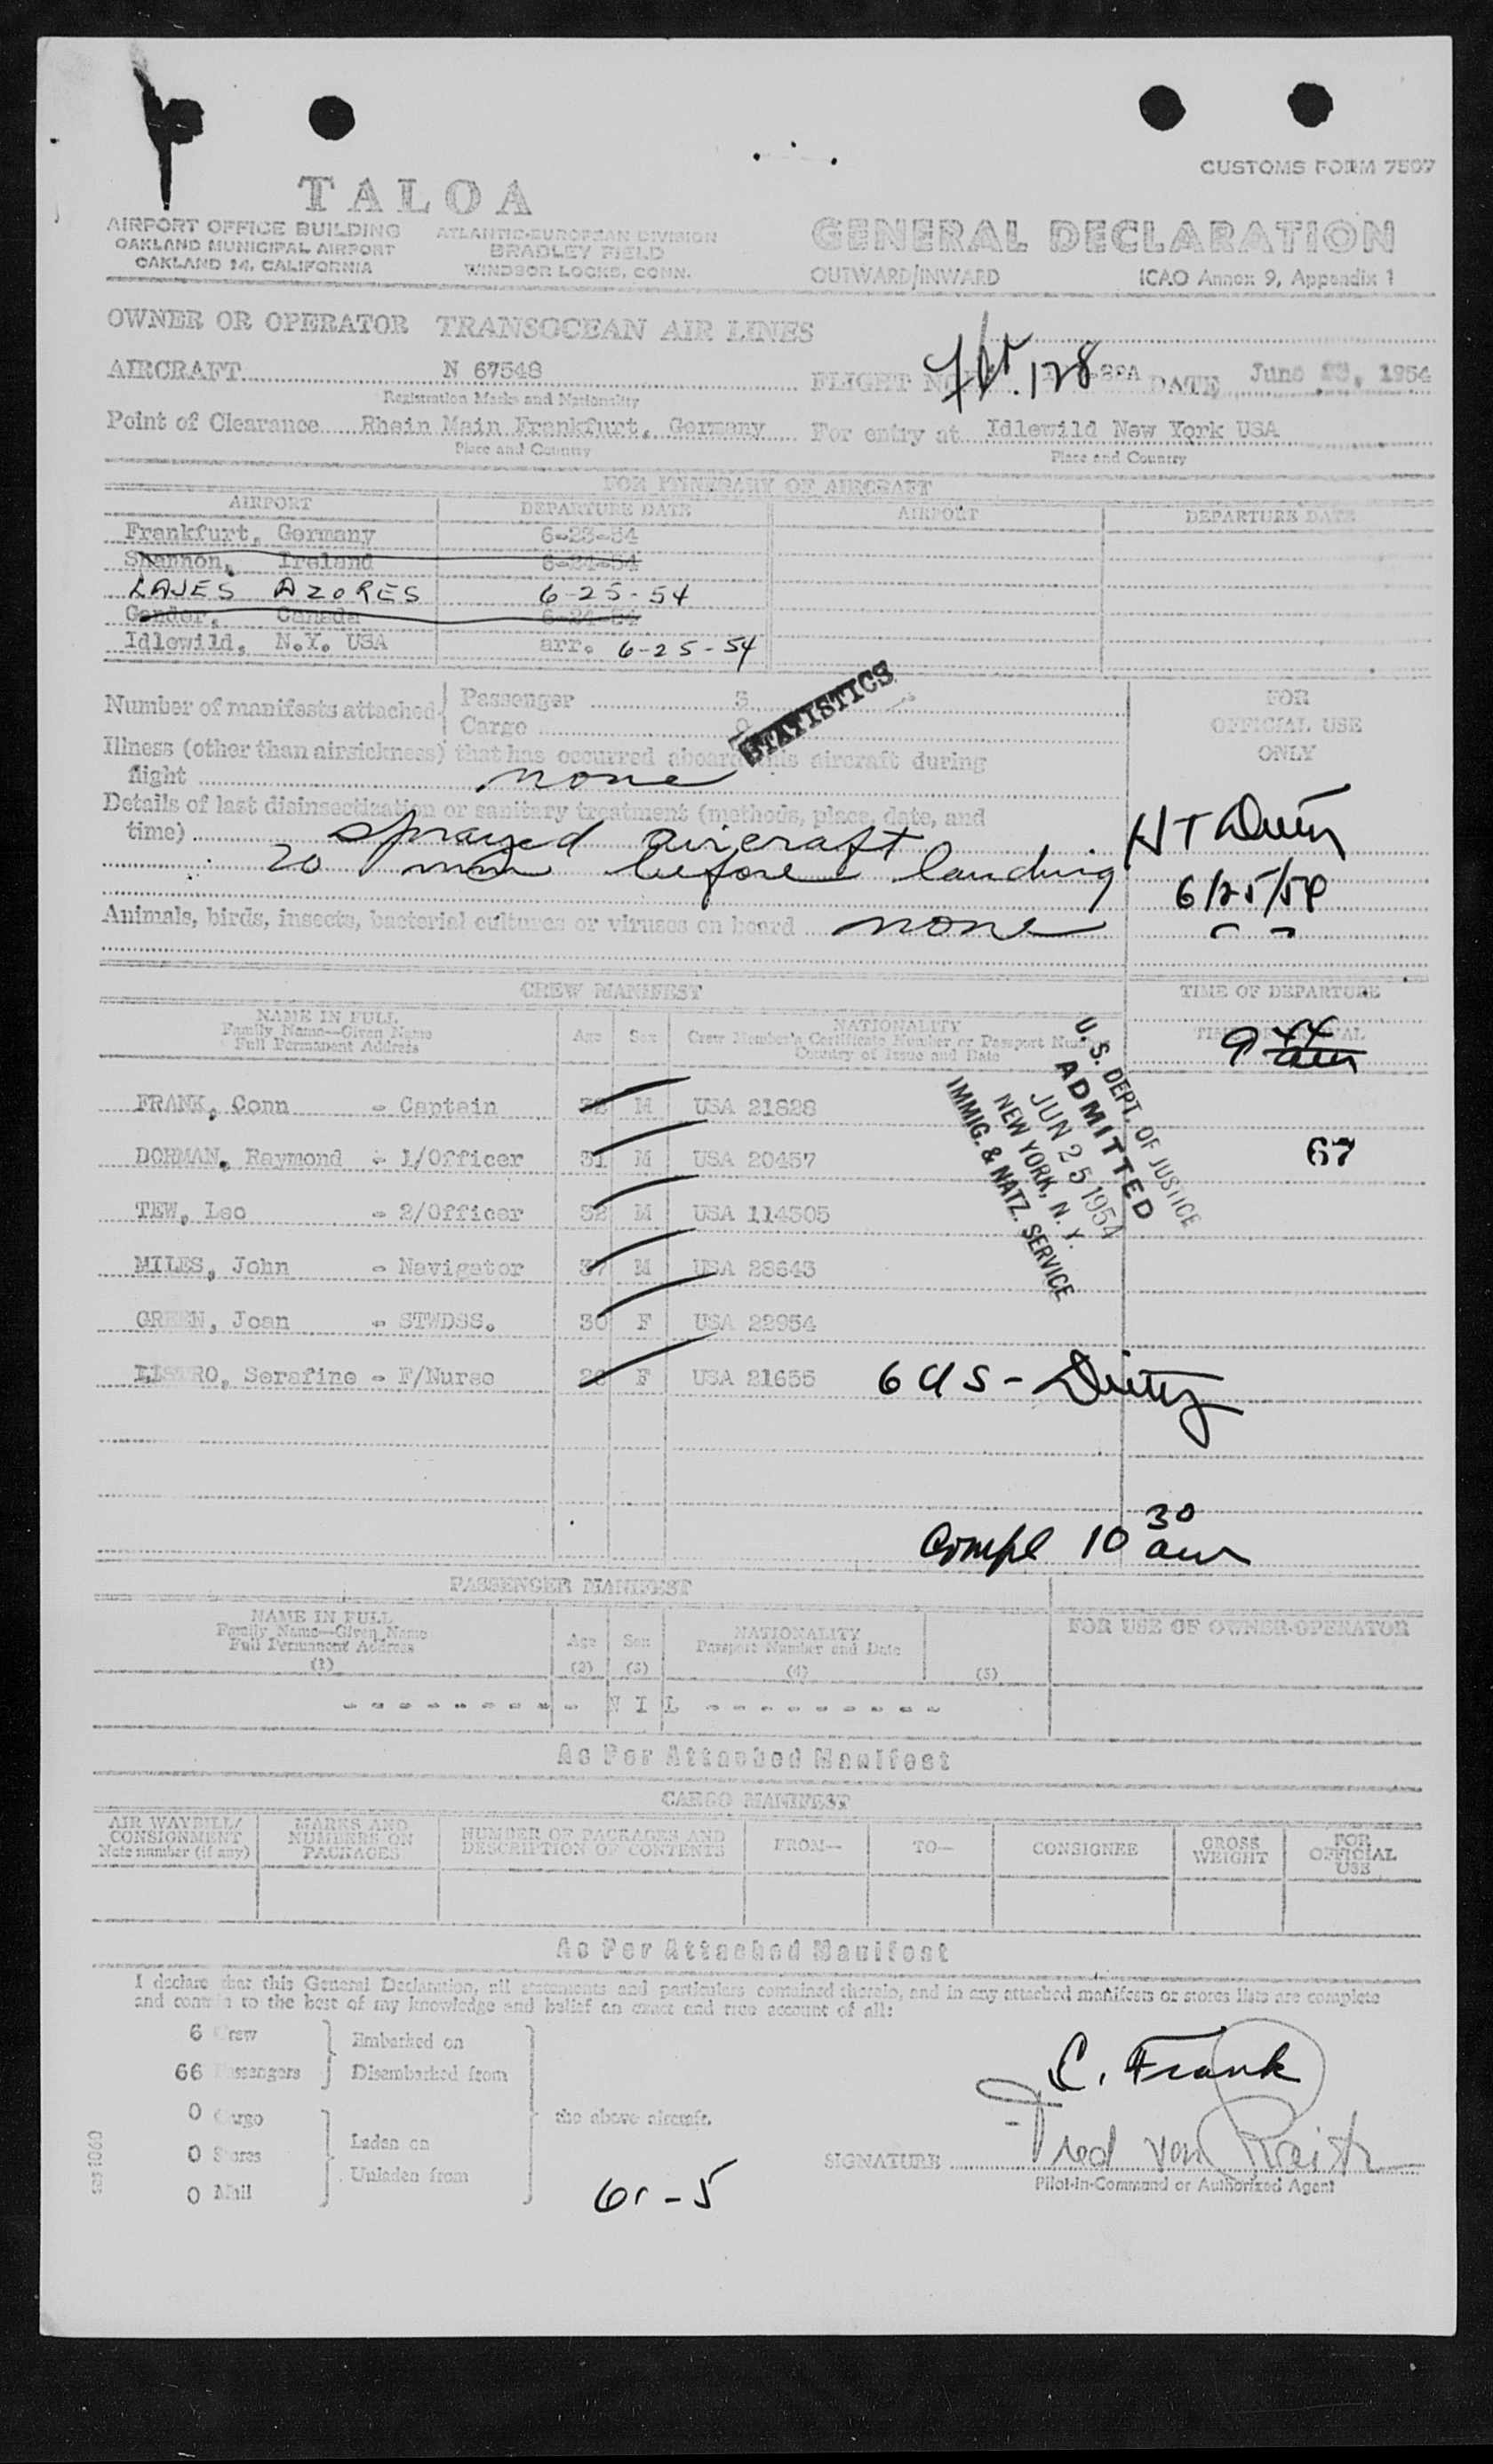 CUSTOMS FORM 7507
TALOA
AIRPORT OFFICE BUILDING
OAKLAND MUNICIPAL AIRPORT
OAKLAND 14, CALIFORNIA
ATLANTIC-EUROPEAN DIVISION
BRADLEY FIELD
WINDSOR LOCKS, CONN.
GENERAL DECLARATION
OUTWARD/INWARD ICAO Annex 9, Appendix 1
OWNER OR OPERATOR TRANSOCEAN AIR LINES
AIRCRAFT N 67548 FLIGHT NO. Flt. 128 DATE June 1954
Registration Marks and Nationality
Point of Clearance Rhein Main Frankfurt, Germany For entry at Idlewild New York USA
Place and Country Place and Country
FOR ITINERARY OF AIRCRAFT
AIRPORT DEPARTURE DATE AIRPORT DEPARTURE DATE
Frankfurt, Germany 6-23-54
Shannon, Ireland 6-24-54
LAJES AZORES 6-25-54
Gander, Canada 6-24-54
Idlewild, N.Y. USA arr. 6-25-54
Number of manifests attached Passenger 3
Cargo 0
STATISTICS
FOR
OFFICIAL USE
ONLY
Illness (other than airsickness) that has occurred aboard this aircraft during
flight none
Details of last disinsectization or sanitary treatment (methods, place, date, and
time) sprayed aircraft
20 min before landing
6/25/54
Animals, birds, insects, bacterial cultures or viruses on board none
CREW MANIFEST TIME OF DEPARTURE
NAME IN FULL
Family Name—Given Name
Full Permanent Address
Age Sex
NATIONALITY
Crew Member's Certificate Number or Passport Number
Country of Issue and Date
TIME OF ARRIVAL
9 44 am
FRANK, Conn - Captain 32 M USA 21828
DORMAN, Raymond - 1/Officer 31 M USA 20457
67
TEW, Leo - 2/Officer 32 M USA 114505
MILES, John - Navigator 37 M USA 28643
GREEN, Joan - STWDSS. 30 F USA 22954
LISTRO, Serafine - F/Nurse F USA 21655
U. S. DEPT. OF JUSTICE
ADMITTED
JUN 25 1954
NEW YORK, N. Y.
IMMIG. & NATZ. SERVICE
6 US -
Compl 10 30 am
PASSENGER MANIFEST
NAME IN FULL
Family Name—Given Name
Full Permanent Address
(1)
Age
(2)
Sex
(3)
NATIONALITY
Passport Number and Date
(4) (5)
FOR USE OF OWNER-OPERATOR
- - - - - - - - - N I L - - - - - - - - -
As Per Attached Manifest
CARGO MANIFEST
AIR WAYBILL/
CONSIGNMENT
Note number (if any)
MARKS AND
NUMBERS ON
PACKAGES
NUMBER OF PACKAGES AND
DESCRIPTION OF CONTENTS
FROM— TO— CONSIGNEE
GROSS
WEIGHT
FOR
OFFICIAL
USE
As Per Attached Manifest
I declare that this General Declaration, all statements and particulars contained therein, and in any attached manifests or stores lists are complete
and contain to the best of my knowledge and belief an exact and true account of all:
6 Crew Embarked on
66 Passengers Disembarked from
0 Cargo the above aircraft.
0 Stores Laden on
0 Mail Unladen from
C. Frank
SIGNATURE Fred von
Pilot-in-Command or Authorized Agent